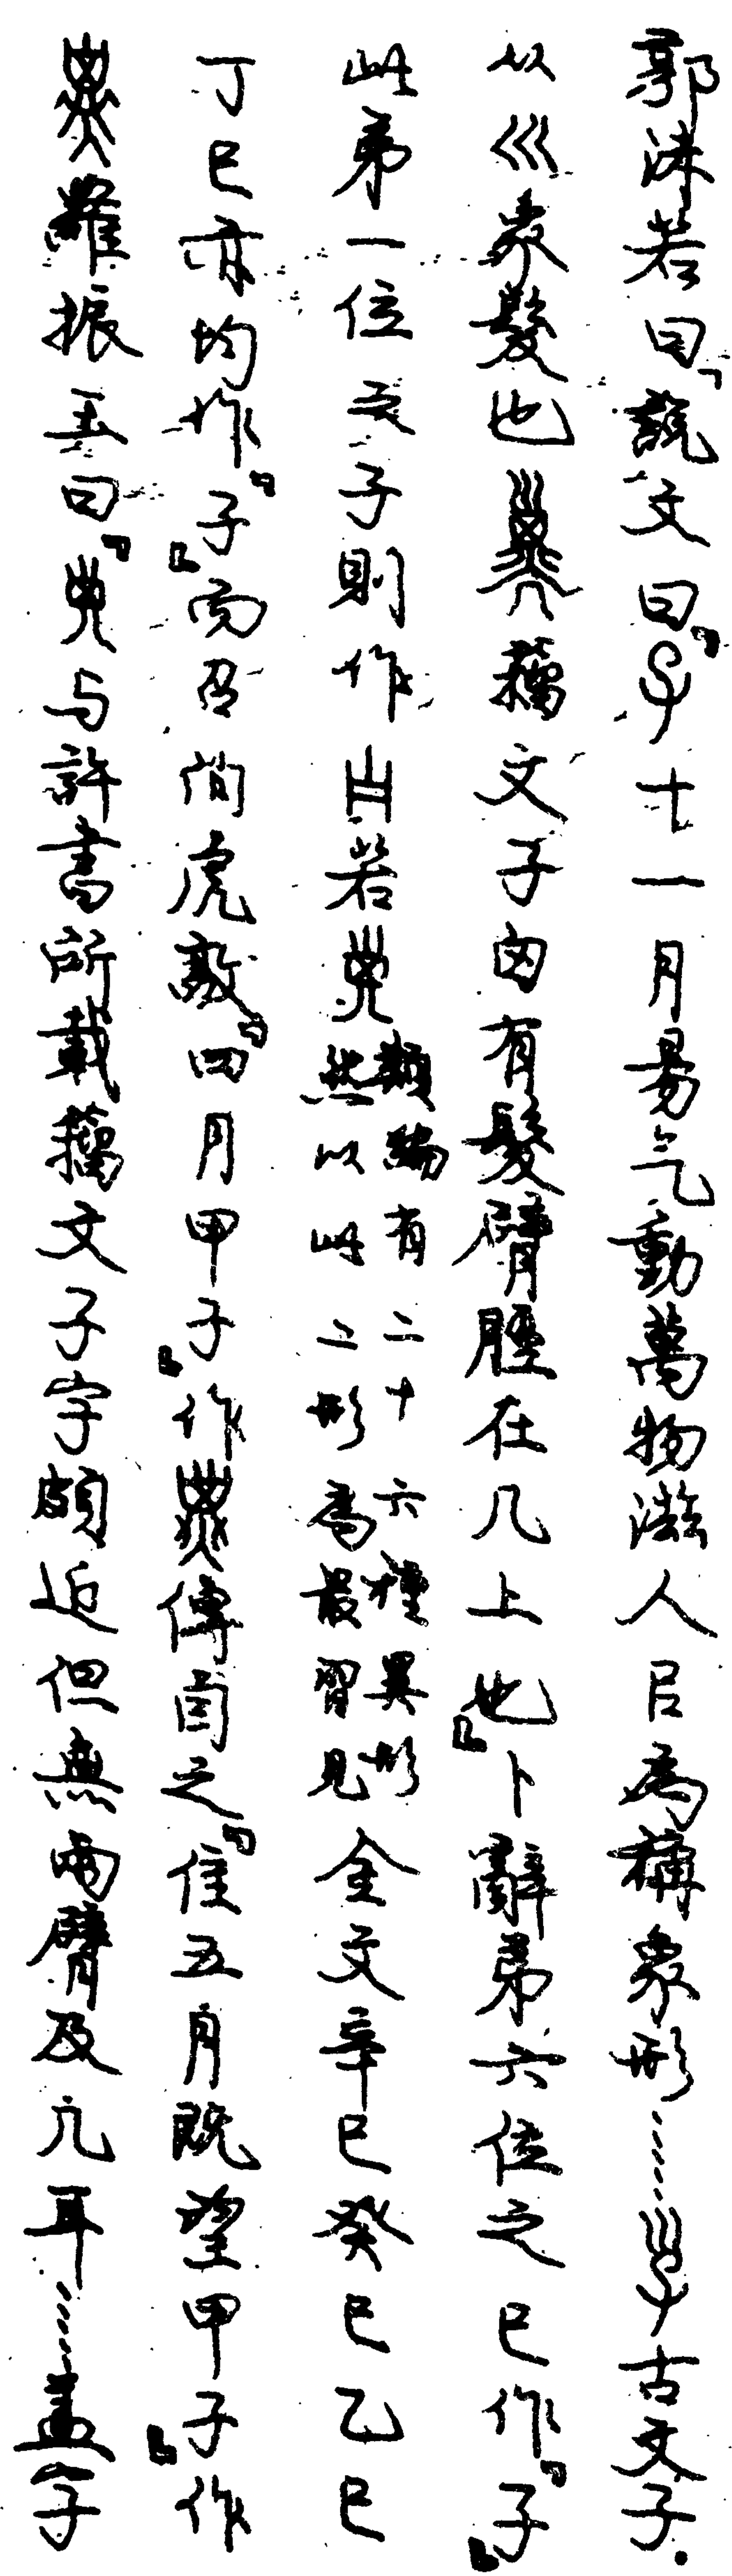 郭沫若曰「說文曰「子十一月昜气動萬物滋人㠯為稱象形……㜽古文子.
从巛象髮也籒文子囟有髮臂脛在几上也」卜辭弟六位之巳作「子」
此弟一位之子則作若類編有二十六種異形然以此二形為最習見金文辛巳癸巳乙巳
丁巳亦均作「子」而召伯虎敦「四月甲子」作傳卣之「隹五月既望甲子」作
羅振玉曰「与許書所載籒文子字頗近但無兩臂及几耳……蓋字